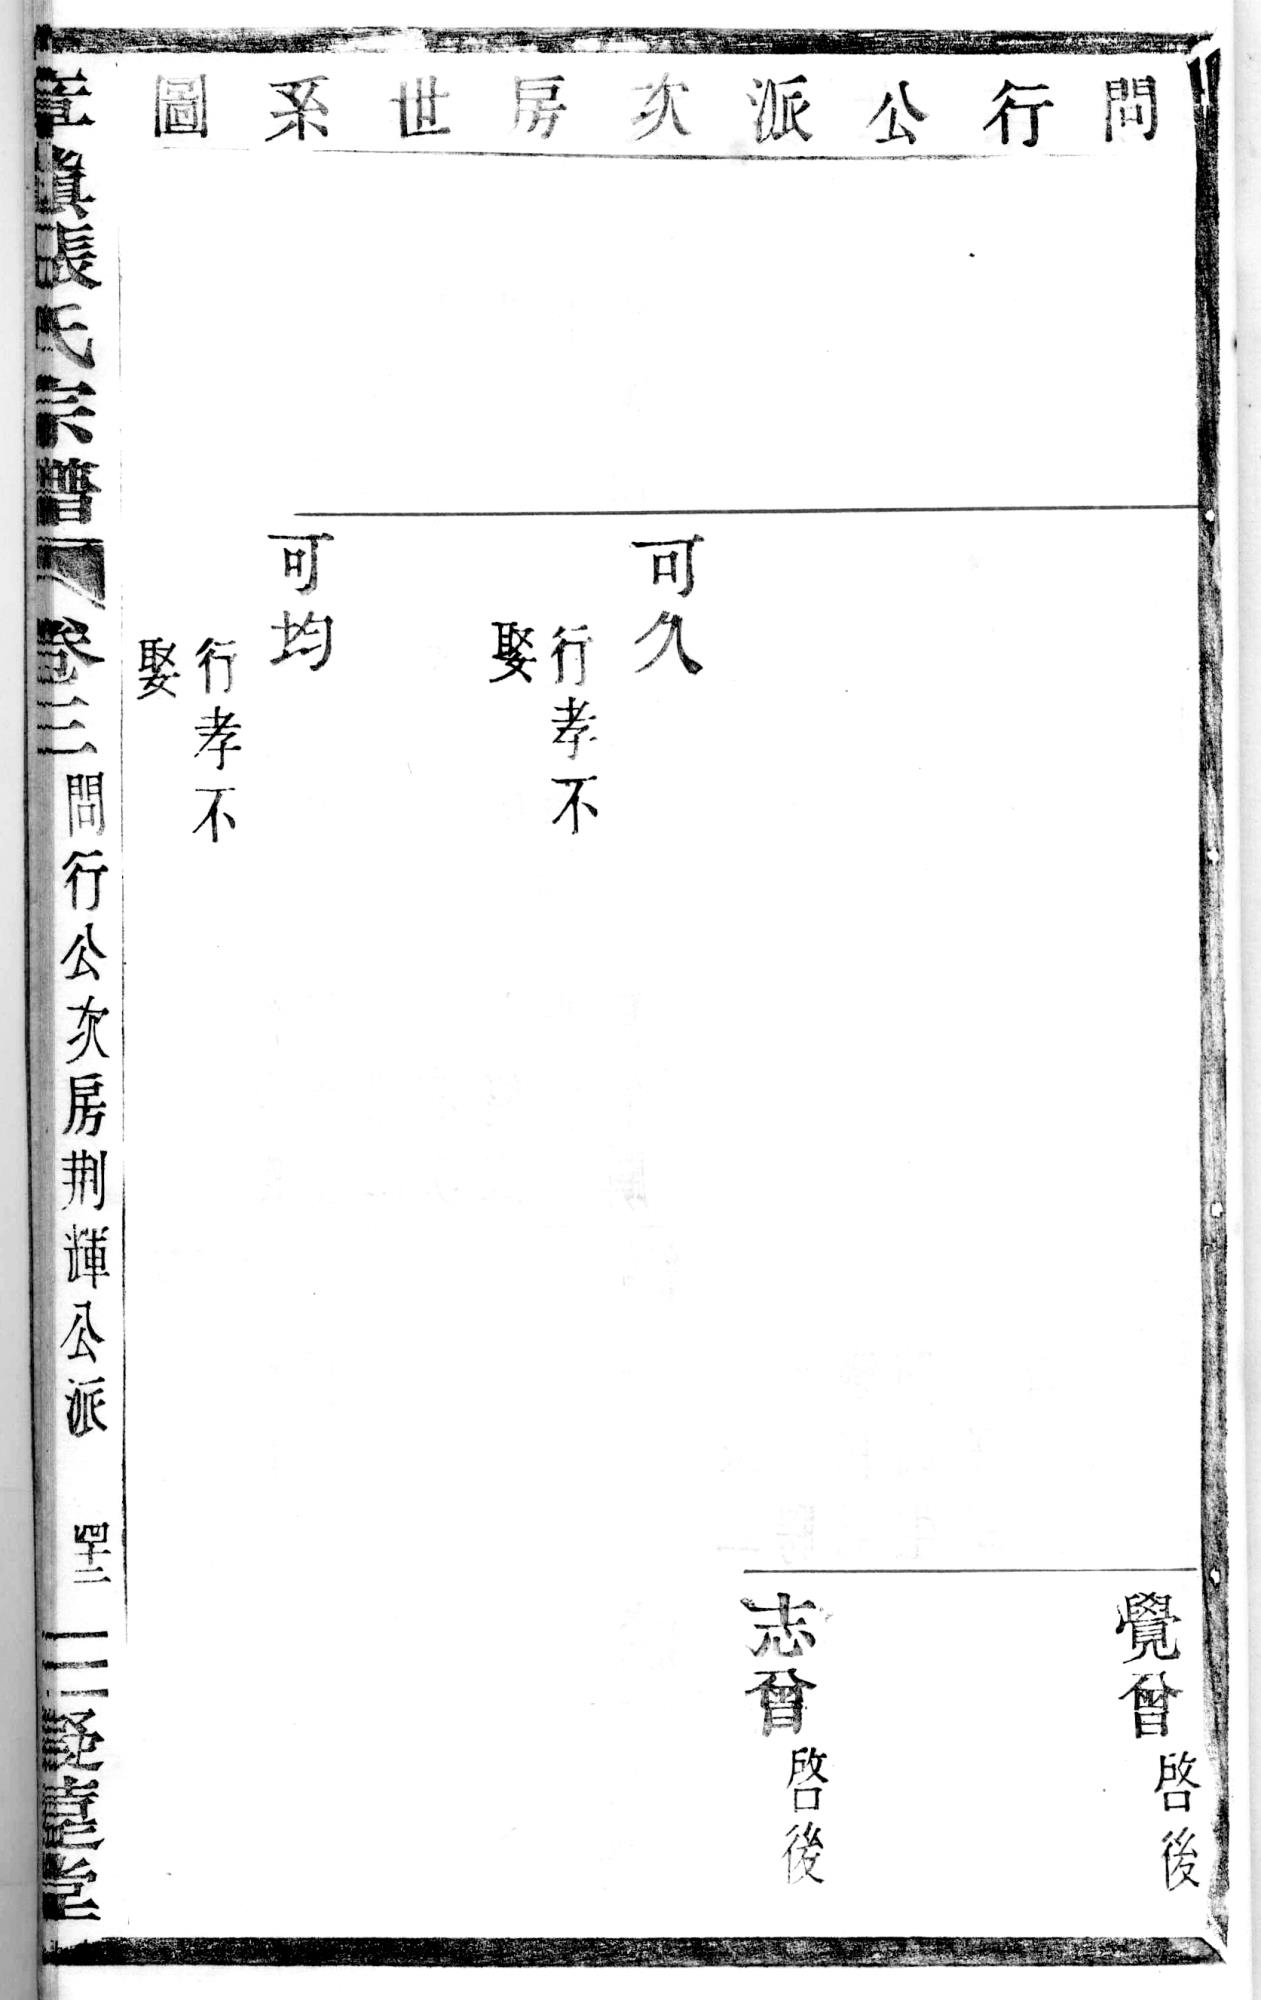 問行公派次房世系圖
覺曾
啓後
志曾
啓後
可久
行孝不
娶
可均
行孝不
娶
章鎮張氏宗譜
卷三
問行公次房荆輝公派
四十二
堂